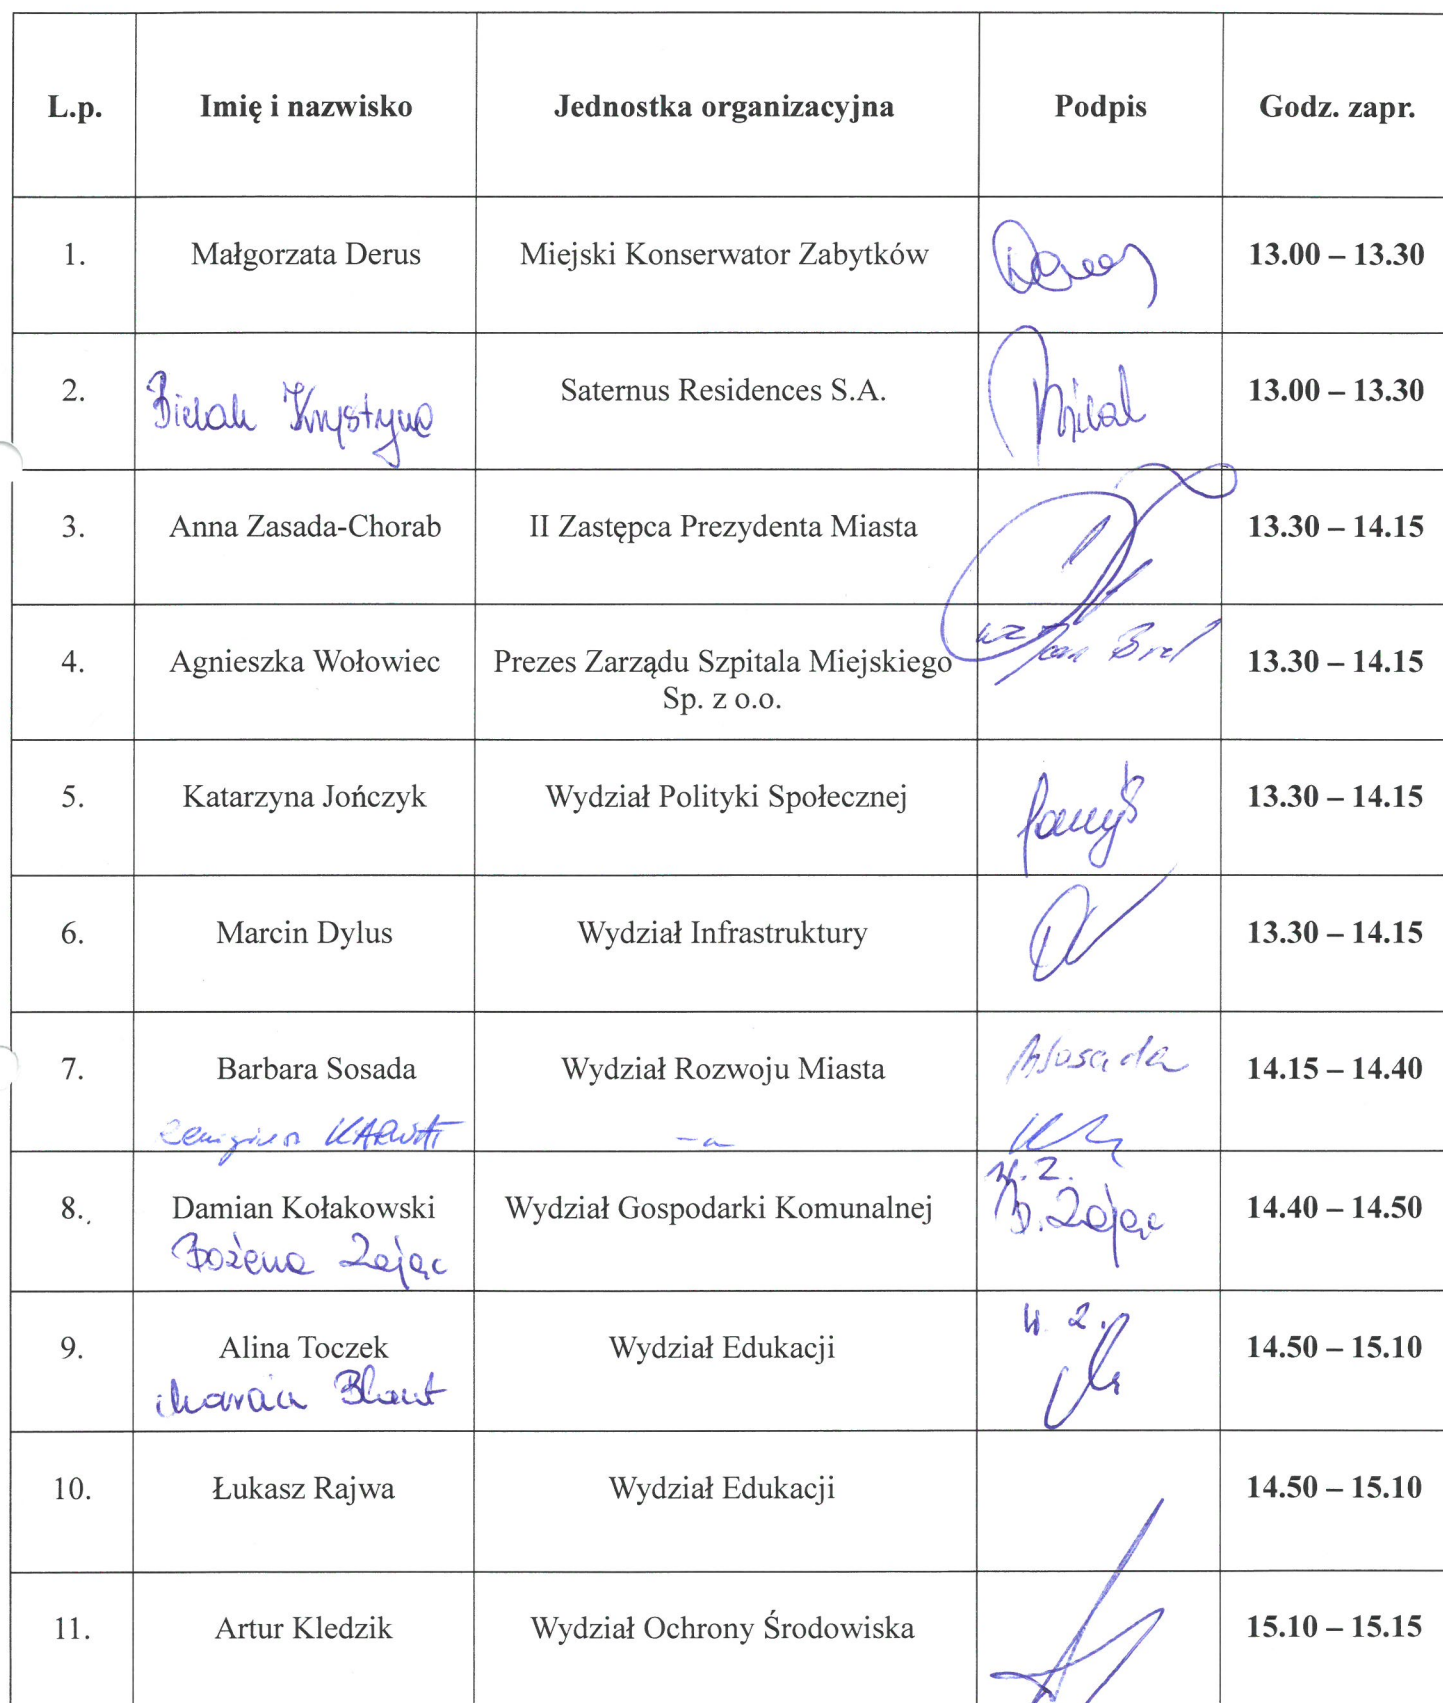 L.p. Imię i nazwisko Jednostka organizacyjna Podpis Godz. zapr.
1. Małgorzata Derus Miejski Konserwator Zabytków 13.00 – 13.30
2. Bielak Krystyna Saternus Residences S.A. 13.00 – 13.30
3. Anna Zasada-Chorab II Zastępca Prezydenta Miasta 13.30 – 14.15
4. Agnieszka Wołowiec Prezes Zarządu Szpitala Miejskiego 13.30 – 14.15
Sp. z o.o.
5. Katarzyna Jończyk Wydział Polityki Społecznej 13.30 – 14.15
6. Marcin Dylus Wydział Infrastruktury 13.30 – 14.15
7. Barbara Sosada Wydział Rozwoju Miasta 14.15 – 14.40
8. Damian Kołakowski Wydział Gospodarki Komunalnej B. Zając 14.40 – 14.50
Bożena Zając
9. Alina Toczek Wydział Edukacji 14.50 – 15.10
10. Łukasz Rajwa Wydział Edukacji 14.50 – 15.10
11. Artur Kledzik Wydział Ochrony Środowiska 15.10 – 15.15